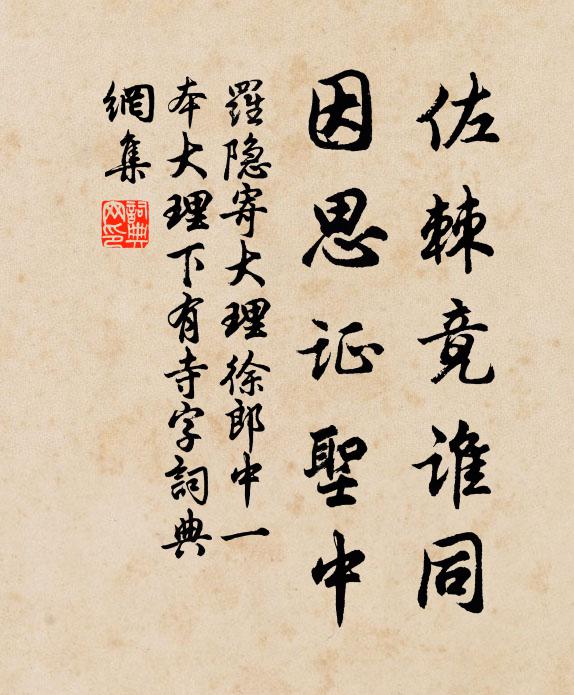 佐棘竟谁同
因思证聖中
羅隐寄大理徐郎中一
本大理下有寺字詞典
網集
詞典网印